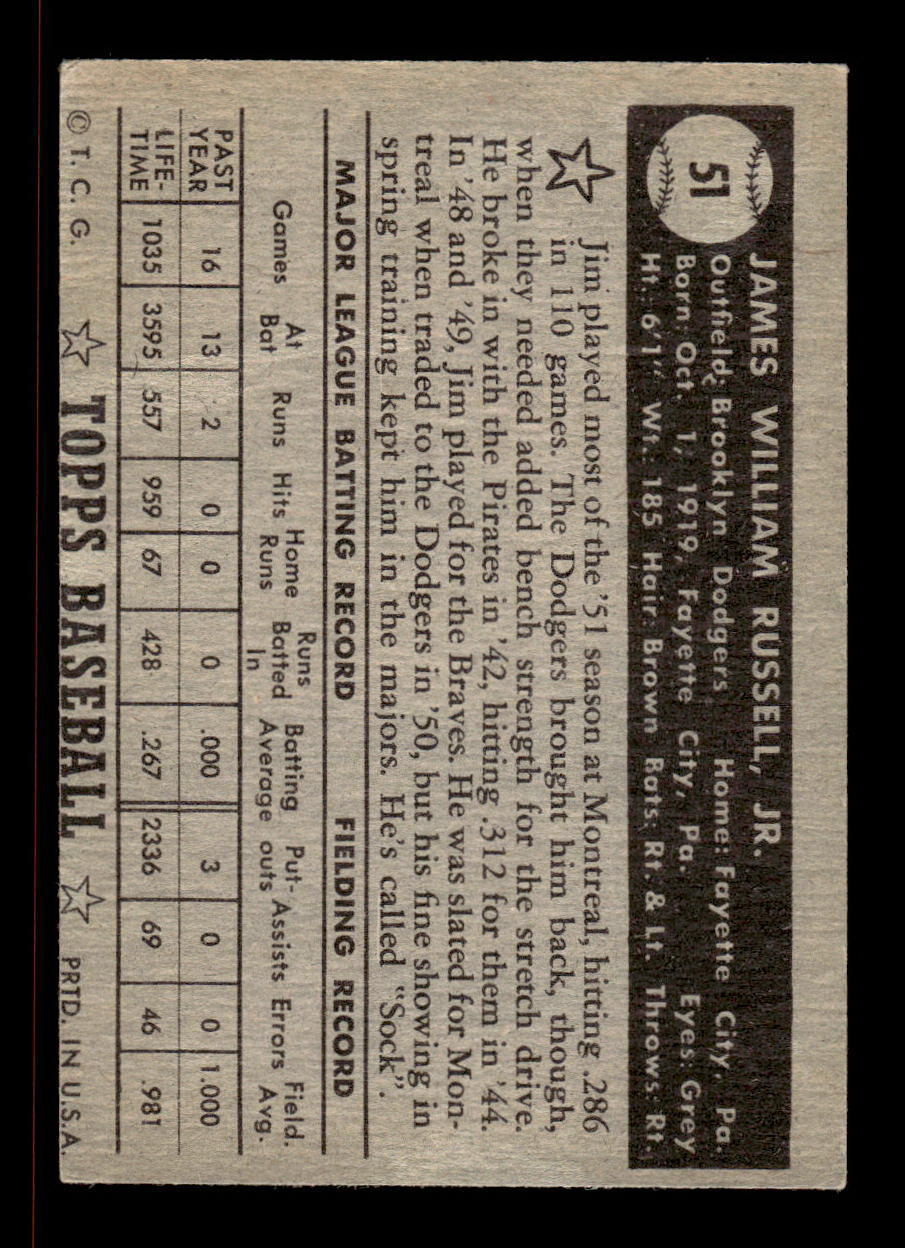 51
JAMES WILLIAM RUSSELL, JR.
Outfield: Brooklyn Dodgers Home: Fayette City, Pa.
Born: Oct. 1, 1919, Fayette City, Pa. Eyes: Grey
Ht.: 6'1" Wt.: 185 Hair: Brown Bats: Rt. & Lt. Throws: Rt.
Jim played most of the '51 season at Montreal, hitting .286
in 110 games. The Dodgers brought him back, though,
when they needed added bench strength for the stretch drive.
He broke in with the Pirates in '42, hitting .312 for them in '44.
In '48 and '49, Jim played for the Braves. He was slated for Mon-
treal when traded to the Dodgers in '50, but his fine showing in
spring training kept him in the majors. He's called "Sock".
MAJOR LEAGUE BATTING RECORD FIELDING RECORD
Games At Bat Runs Hits Home Runs Runs Batted In Batting Average Put-outs Assists Errors Field. Avg.
PAST YEAR 16 13 2 0 0 0 .000 3 0 0 1.000
LIFE-TIME 1035 3595 557 959 67 428 .267 2336 69 46 .981
© T. C. G. TOPPS BASEBALL PRTD. IN U.S.A.